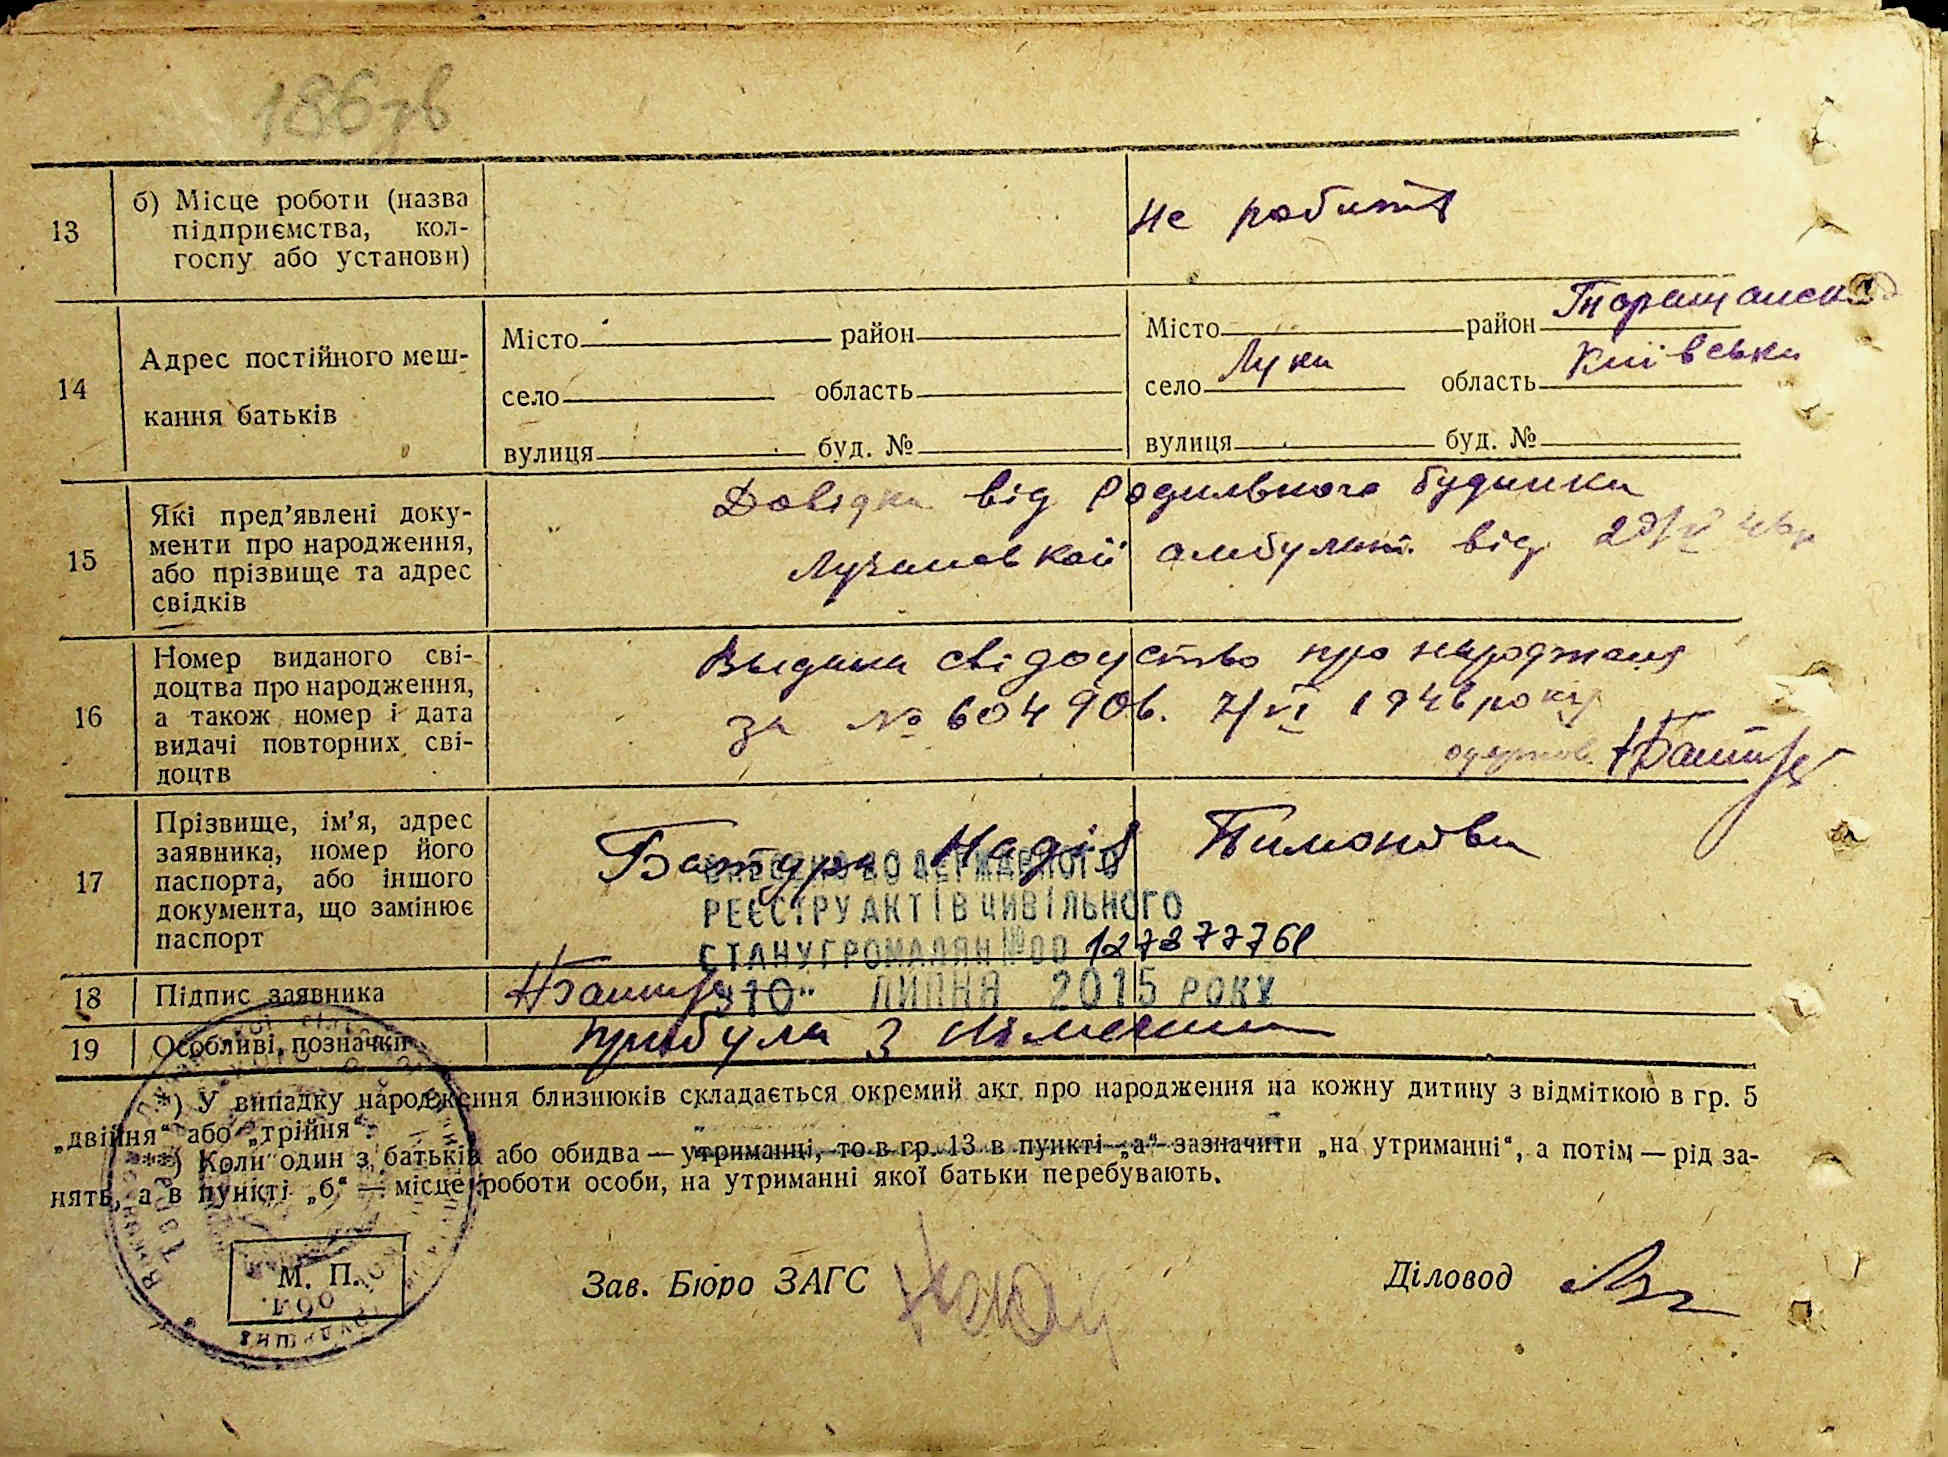 186 зв
13 б) Місце роботи (назва
підприємства, кол-
госпу або установи)
не робить
14 Адрес постійного меш-
кання батьків
Місто район
село область
вулиця буд. №
Місто район Таращанськ
село Лука область Київська
вулиця буд. №
15 Які пред'явлені доку-
менти про народження,
або прізвище та адрес
свідків
Довідка від Родильного будинка
Лучанської амбулат. від
16 Номер виданого сві-
доцтва про народження,
а також номер і дата
видачі повторних сві-
доцтв
Выдана свідоцтво про народження
за № 604906. 7/VI 1946 року
17 Прізвище, ім'я, адрес
заявника, номер його
паспорта, або іншого
документа, що замінює
паспорт
Батура Надія Тимонови
ВНЕСЕНО ДО ДЕРЖАВНОГО
РЕЄСТРУ АКТІВ ЦИВІЛЬНОГО
СТАНУ ГРОМАДЯН №00 127877761
"10" ЛИПНЯ 2015 РОКУ
18 Підпис заявника
19 Особливі позначки
прибула з Німеччини
*) У випадку народження близнюків складається окремий акт про народження на кожну дитину з відміткою в гр. 5
„двійня“ або „трійня“.
**) Коли один з батьків або обидва — утриманці, то в гр. 13 в пункті „а“ зазначити „на утриманні“, а потім — рід за-
нять, а в пункті „б“ — місце роботи особи, на утриманні якої батьки перебувають.
М. П.
Зав. Бюро ЗАГС
Діловод